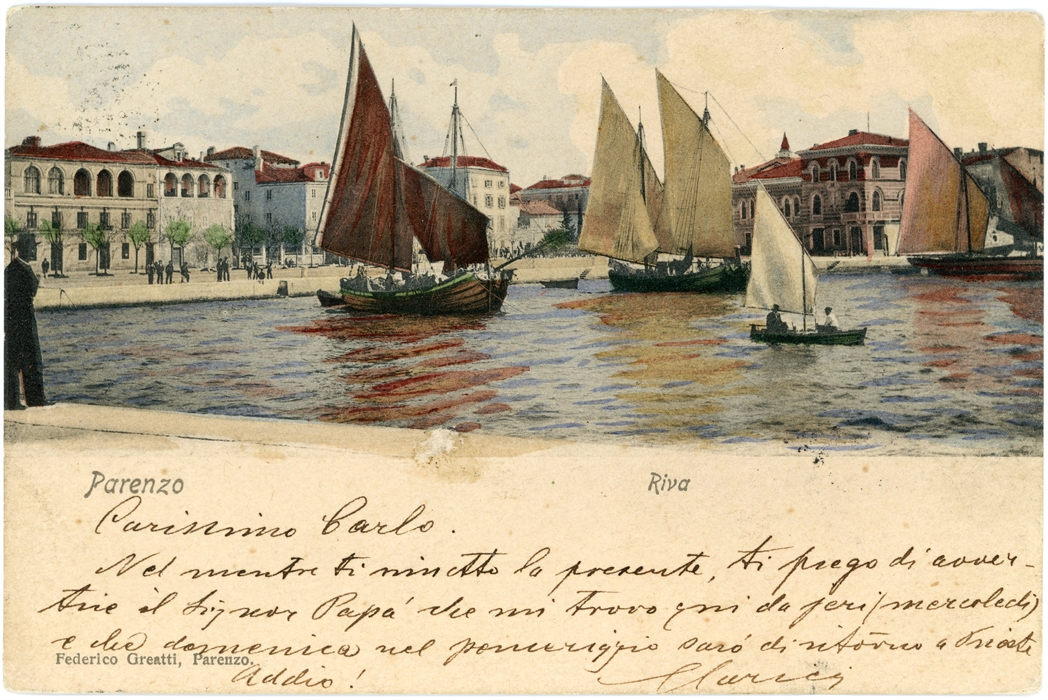 Parenzo Riva
Carissimo Carlo.
Nel mentre ti rimetto la presente, ti prego di avver-
tire il Signor Papá che mi trovo qui da jeri (mercoledi)
e che domenica nel pomeriggio saró di ritorno a Trieste
Federico Greatti, Parenzo.
Addio!